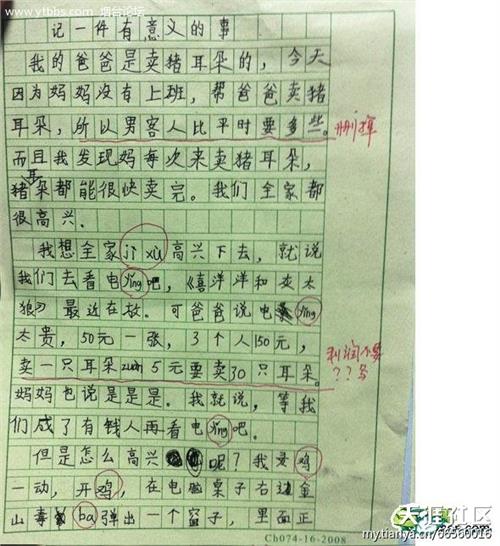 www.ytbbs.com 烟台论坛
记一件有意义的事
我的爸爸是卖猪耳朵的，今天
因为妈妈没有上班，帮爸爸卖猪
耳朵，所以男客人比平时要多些。
删掉
而且我发现妈每次来卖猪耳朵，
猪耳朵都能很快卖完。我们全家都
很高兴．
我想全家jì xù高兴下去，就说
我们去看电yǐng吧，《喜洋洋和灰太
狼》最近在放．可爸爸说电yǐng
太贵，50元一张，3个人150元，
利润不要
？？多
卖一只耳朵zuàn5元要卖30只耳朵。
妈妈也说是是是．我就说，等我
们成了有钱人再看电yǐng吧．
但是怎么高兴呢？我爱鸡
一动，开鸡，在电脑桌子右边金
山毒bà弹出一个窗子，里面正
天涯社区
mytianya.cn/66560016
Ch074-16-2008